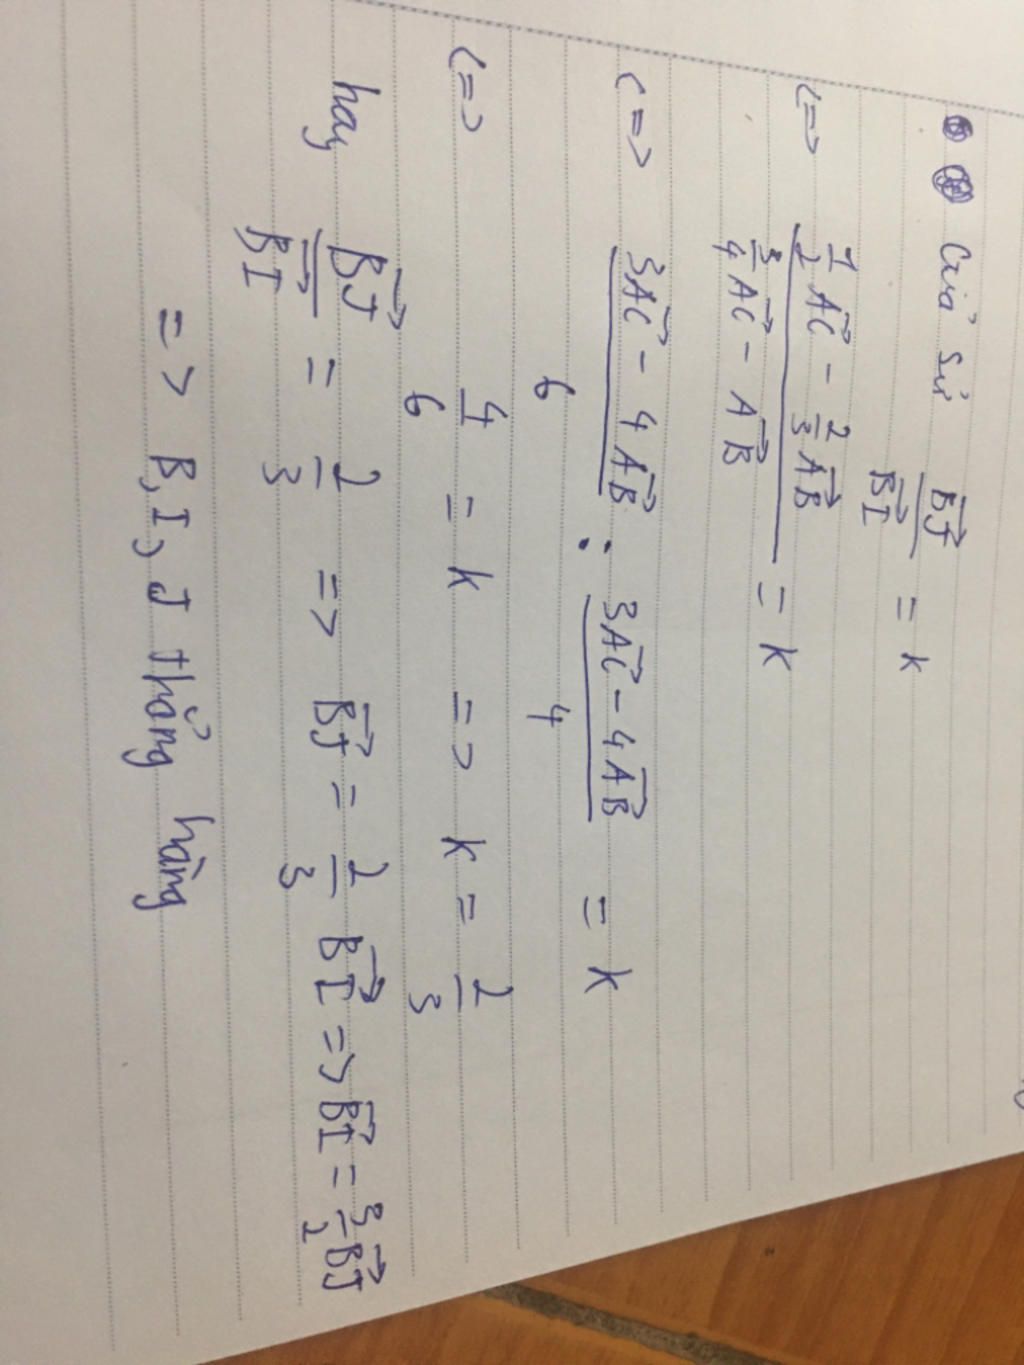 Giả sử $\frac{\overrightarrow{BJ}}{\overrightarrow{BI}} = k$
<=> $\frac{\frac{1}{2}\overrightarrow{AC} - \frac{2}{3}\overrightarrow{AB}}{\frac{3}{4}\overrightarrow{AC} - \overrightarrow{AB}} = k$
<=> $\frac{3\overrightarrow{AC} - 4\overrightarrow{AB}}{6} : \frac{3\overrightarrow{AC} - 4\overrightarrow{AB}}{4} = k$
<=> $\frac{4}{6} = k$ => $k = \frac{2}{3}$
hay $\frac{\overrightarrow{BJ}}{\overrightarrow{BI}} = \frac{2}{3}$ => $\overrightarrow{BJ} = \frac{2}{3}\overrightarrow{BI}$ => $\overrightarrow{BI} = \frac{3}{2}\overrightarrow{BJ}$
=> B, I, J thẳng hàng